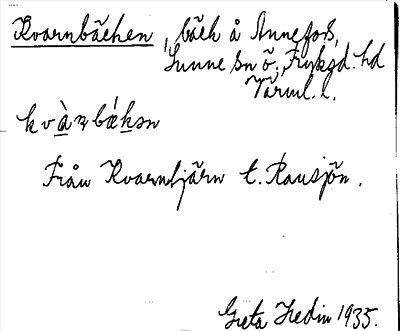 Kvarnbäcken, bäck å Annefors,
Sunne sn ö., Fryksd. hd
Värml. l.
kvàɳbækən
Från Kvarntjärn t. Ransjön.
Greta Hedin 1935.